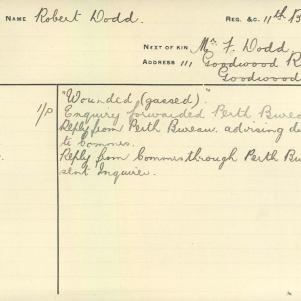 NAME Robert Dodd. REG. &C. 11th B
NEXT OF KIN Mr F. Dodd.
ADDRESS 111 Goodwood R
Goodwood
"Wounded (gassed)."
1/P Enquiry forwarded Perth Bureau
Reply from Perth Bureau advising d
to Commrs.
Reply from Commrs through Perth Bu
sent Inquirer.